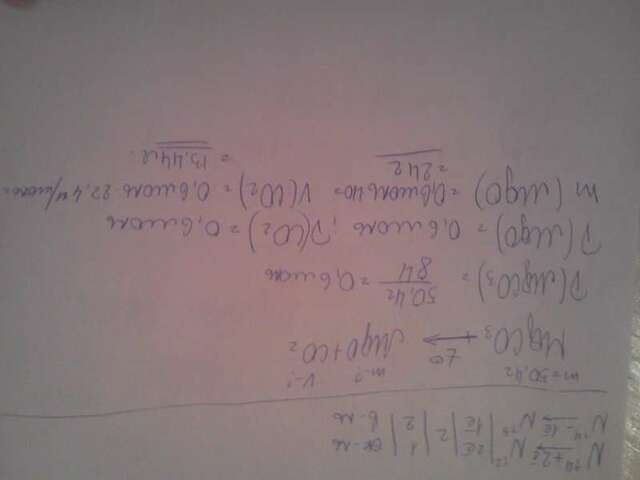 N⁺⁴+2e → N⁺² | 2e | 2 | 1 | ок-ль
N⁺⁴-1e → N⁺⁵ | 1e | | 2 | в-ль
m=50,4г m-? V-?
MgCO₃ → t° MgO+CO₂
ν(MgCO₃) = 50,4г / 84 = 0,6моль
ν(MgO) = 0,6 моль; ν(CO₂) = 0,6моль
m(MgO) = 0,6моль·40= V(CO₂) = 0,6моль·22,4л/моль=
=24г = 13,44л.